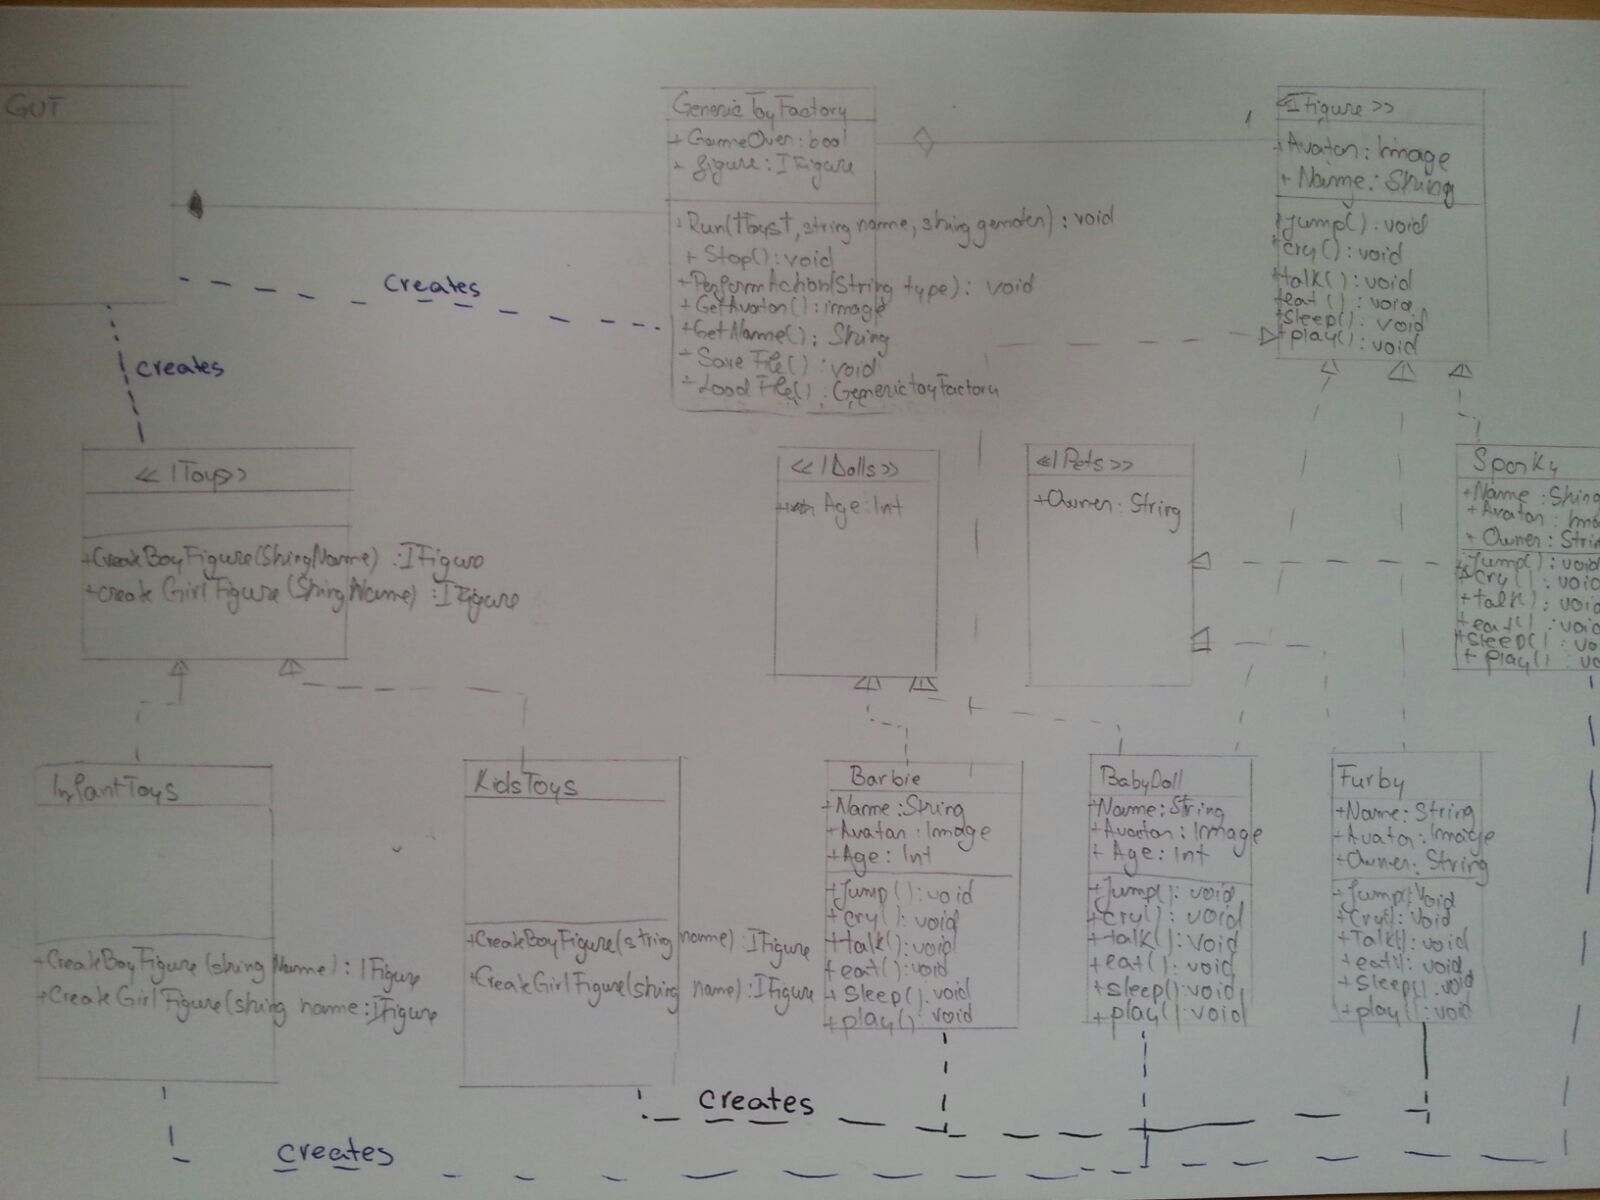 GUI
GenericToyFactory
+ GameOver : bool
- figure : IFigure
+ Run(IToys t, string name, string gender) : void
+ Stop() : void
+ PerformAction(String type) : void
+ GetAvatar() : image
+ GetName() : String
+ Save File() : void
+ Load File() : GenericToyFactory
<IFigure >>
+ Avatar : Image
+ Name : String
+jump() : void
+cry() : void
+talk() : void
+eat () : void
+sleep() : void
+ play() : void
1
creates
creates
<< IToys >>
+CreateBoyFigure(StringName) : IFigure
+create GirlFigure (String Name) : IFigure
<< IDolls >>
Age : Int
<<IPets >>
+Owner : String
Sparky
+Name : String
+ Avatar : Ima
+ Owner : Strin
+jump() : void
+cry() : void
+talk() : void
+eat() : void
+sleep() : vo
+ play() : vo
InfantToys
+CreateBoyFigure (string Name) : IFigure
+ CreateGirlFigure (string name : IFigure
KidsToys
+CreateBoyFigure(string name) : IFigure
+CreateGirlFigure(string name) : IFigure
Barbie
+Name : String
+Avatar : Image
+Age : Int
+jump () : void
+cry() : void
+talk() : void
+eat() : void
+ Sleep() : void
+ play() : void
BabyDoll
+Name : String
+Avatar : Image
+ Age : Int
+jump() : void
+cry() : void
+talk() : void
+eat() : void
+sleep() : void
+ play() : void
Furby
+Name : String
+Avatar : Image
+Owner : String
+Jump() : void
+Cry() : void
+Talk() : void
+eat() : void
+sleep() : void
+ play() : void
creates
creates